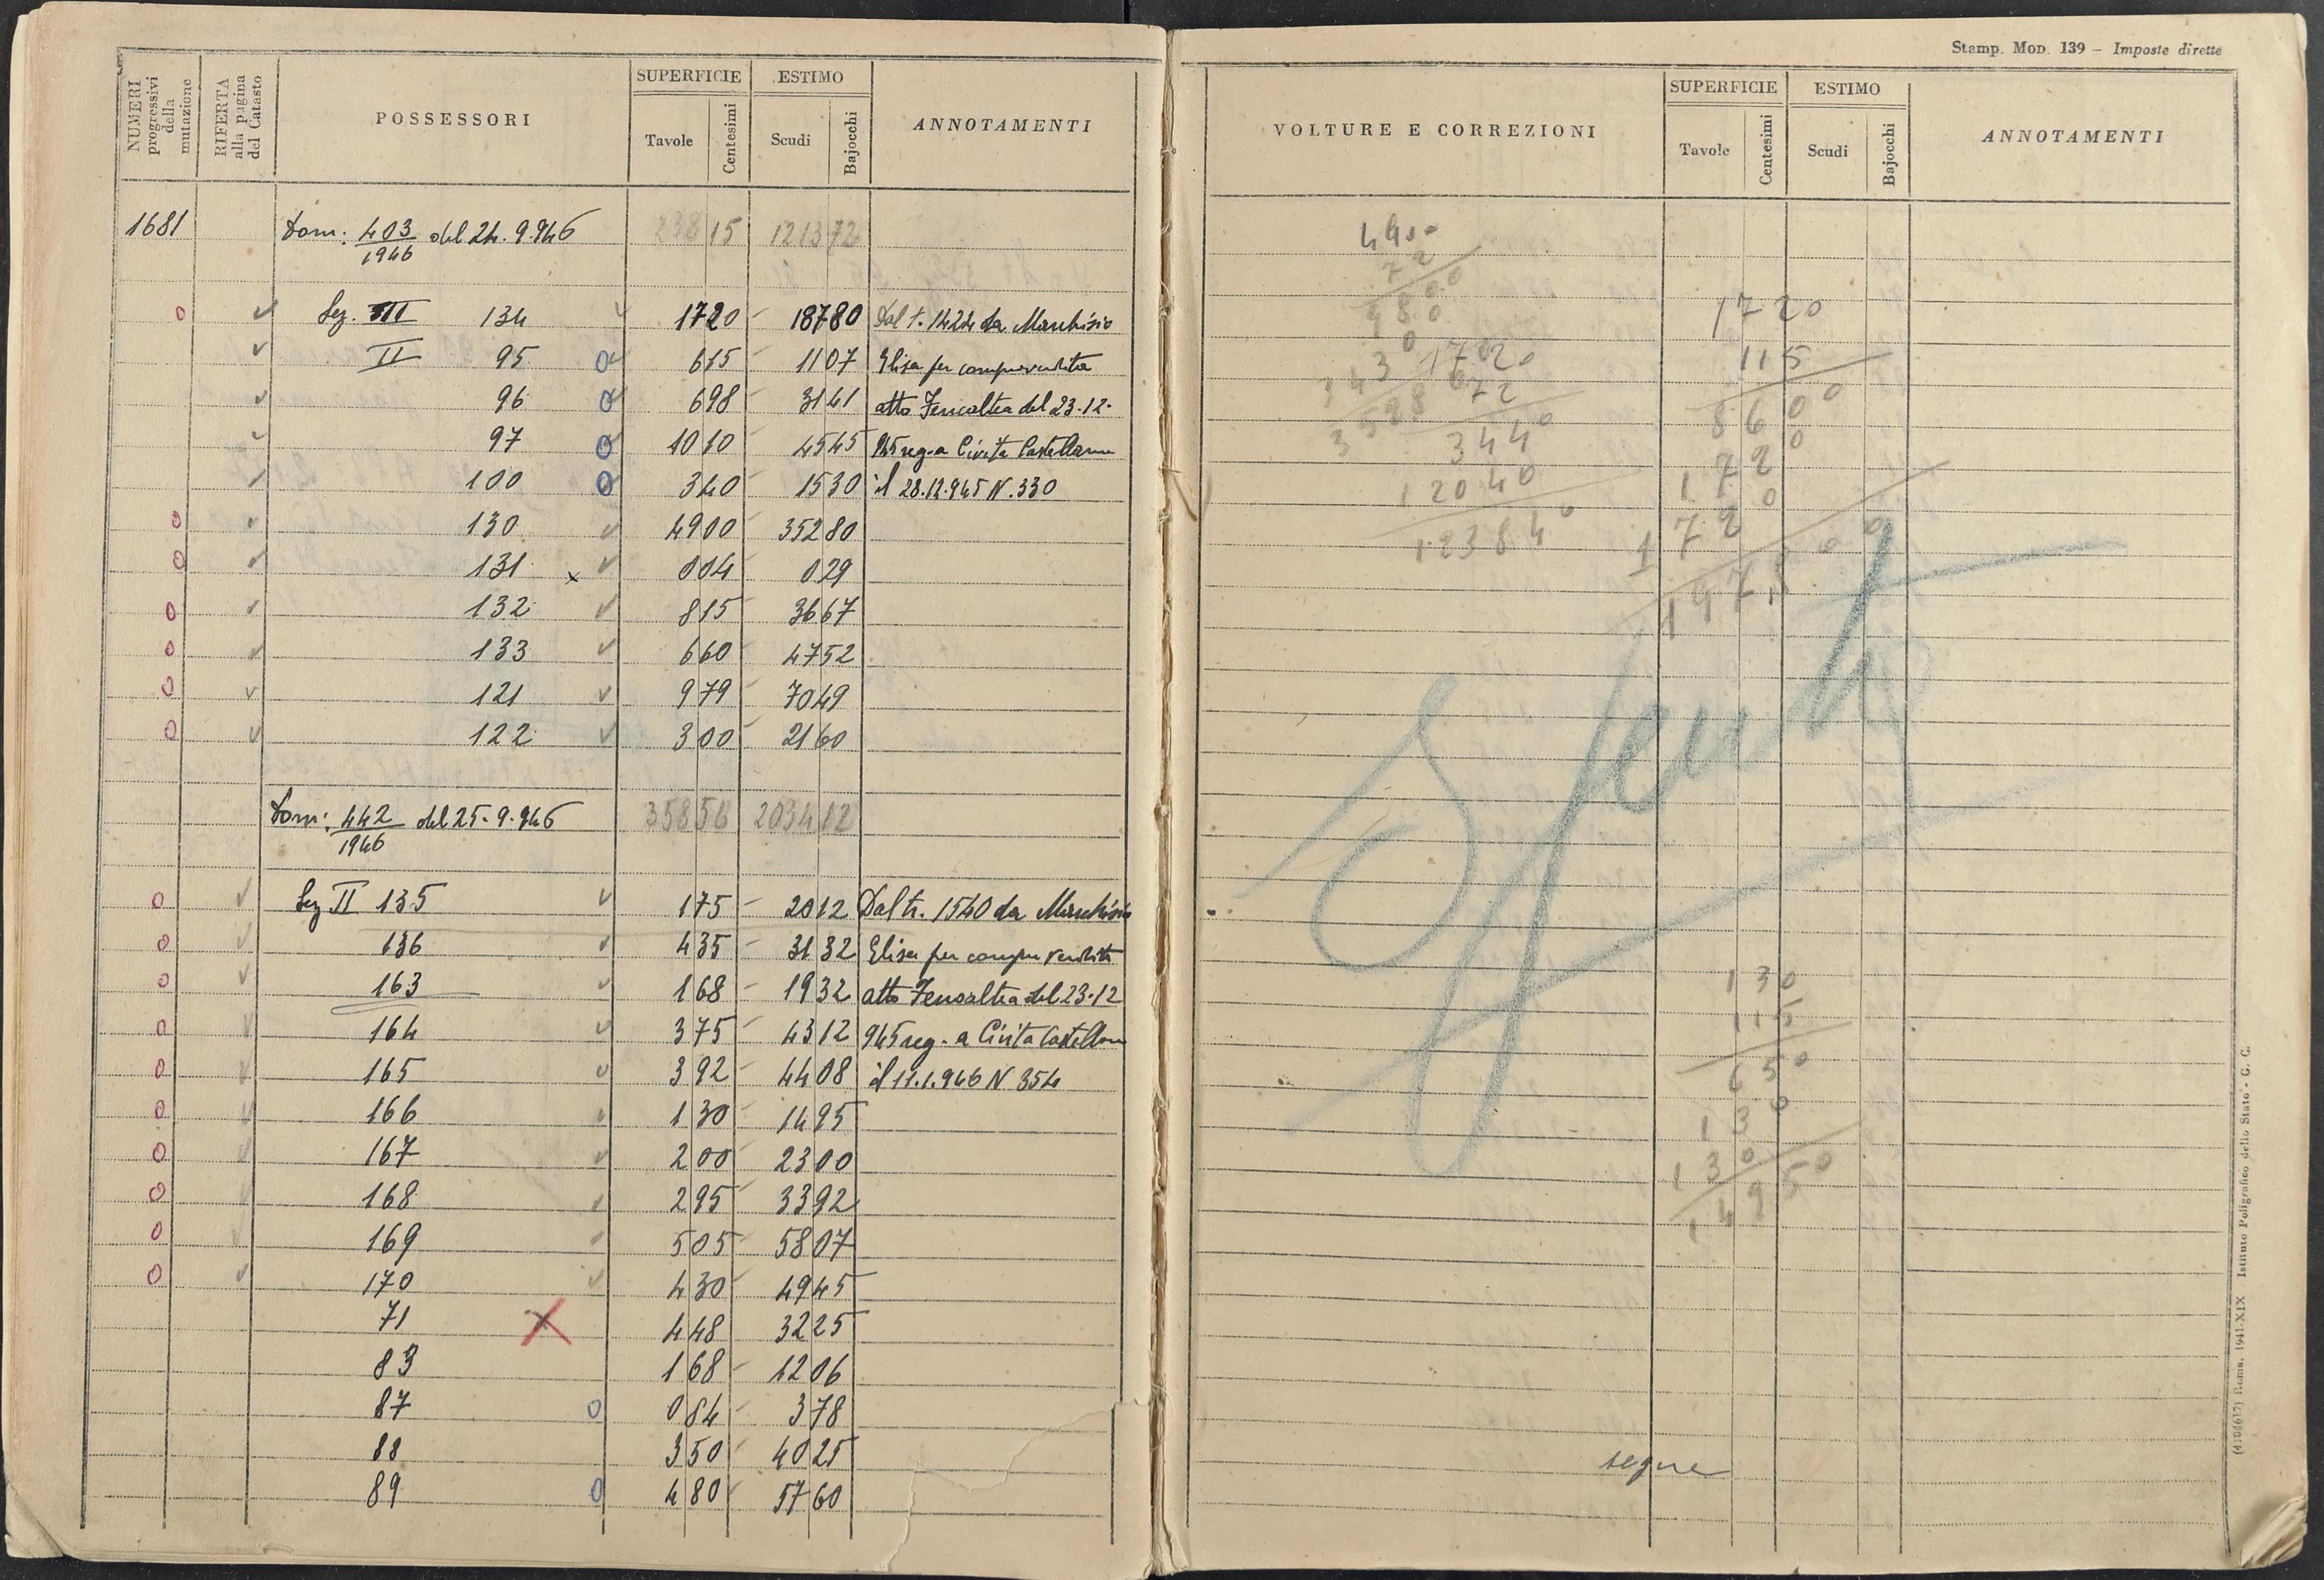 NUMERI progressivi della mutazione
RIFERTA alla pagina del Catasto
POSSESSORI
SUPERFICIE
Tavole
Centesimi
ESTIMO
Scudi
Bajocchi
ANNOTAMENTI
1681 Dom: 403/1946 del 24.9.946 238 15 1213 72
Sez. III 134 17 20 187 80 Dal t. 1424 da Marchisio
II 95 6 15 11 07 Elisa per compravendita
96 6 98 31 41 atto Fencaltea del 23.12.
97 10 10 45 45 945 reg. a Civita Castellana
100 3 40 15 30 il 28.12.945 N. 330
130 49 00 352 80
131 x 0 04 0 29
132 8 15 36 67
133 6 60 47 52
121 9 79 70 49
122 3 00 21 60
Dom: 442/1946 del 25.9.946 358 56 2034 12
Sez II 135 1 75 20 12 Dal t. 1540 da Marchisio
136 4 35 31 32 Elisa per compra vendita
163 1 68 19 32 atto Fencaltea del 23.12
164 3 75 43 12 945 reg. a Civita Castellana
165 3 92 44 08 il 11.1.946 N 354
166 1 30 14 95
167 2 00 23 00
168 2 95 33 92
169 5 05 58 07
170 4 30 49 45
71 X 4 48 32 25
83 1 68 12 06
87 0 84 3 78
88 3 50 40 25
89 4 80 57 60
Stamp. Mod. 139 – Imposte dirette
VOLTURE E CORREZIONI
SUPERFICIE
Tavole
Centesimi
ESTIMO
Scudi
Bajocchi
ANNOTAMENTI
4900
72
9800
3430
352800
1720
72
3440
12040
12384
1720
115
8600
1720
1720
197800
130
115
650
130
130
14950
segue
(4186617) Roma, 1941-XIX Istituto Poligrafico dello Stato - G. C.